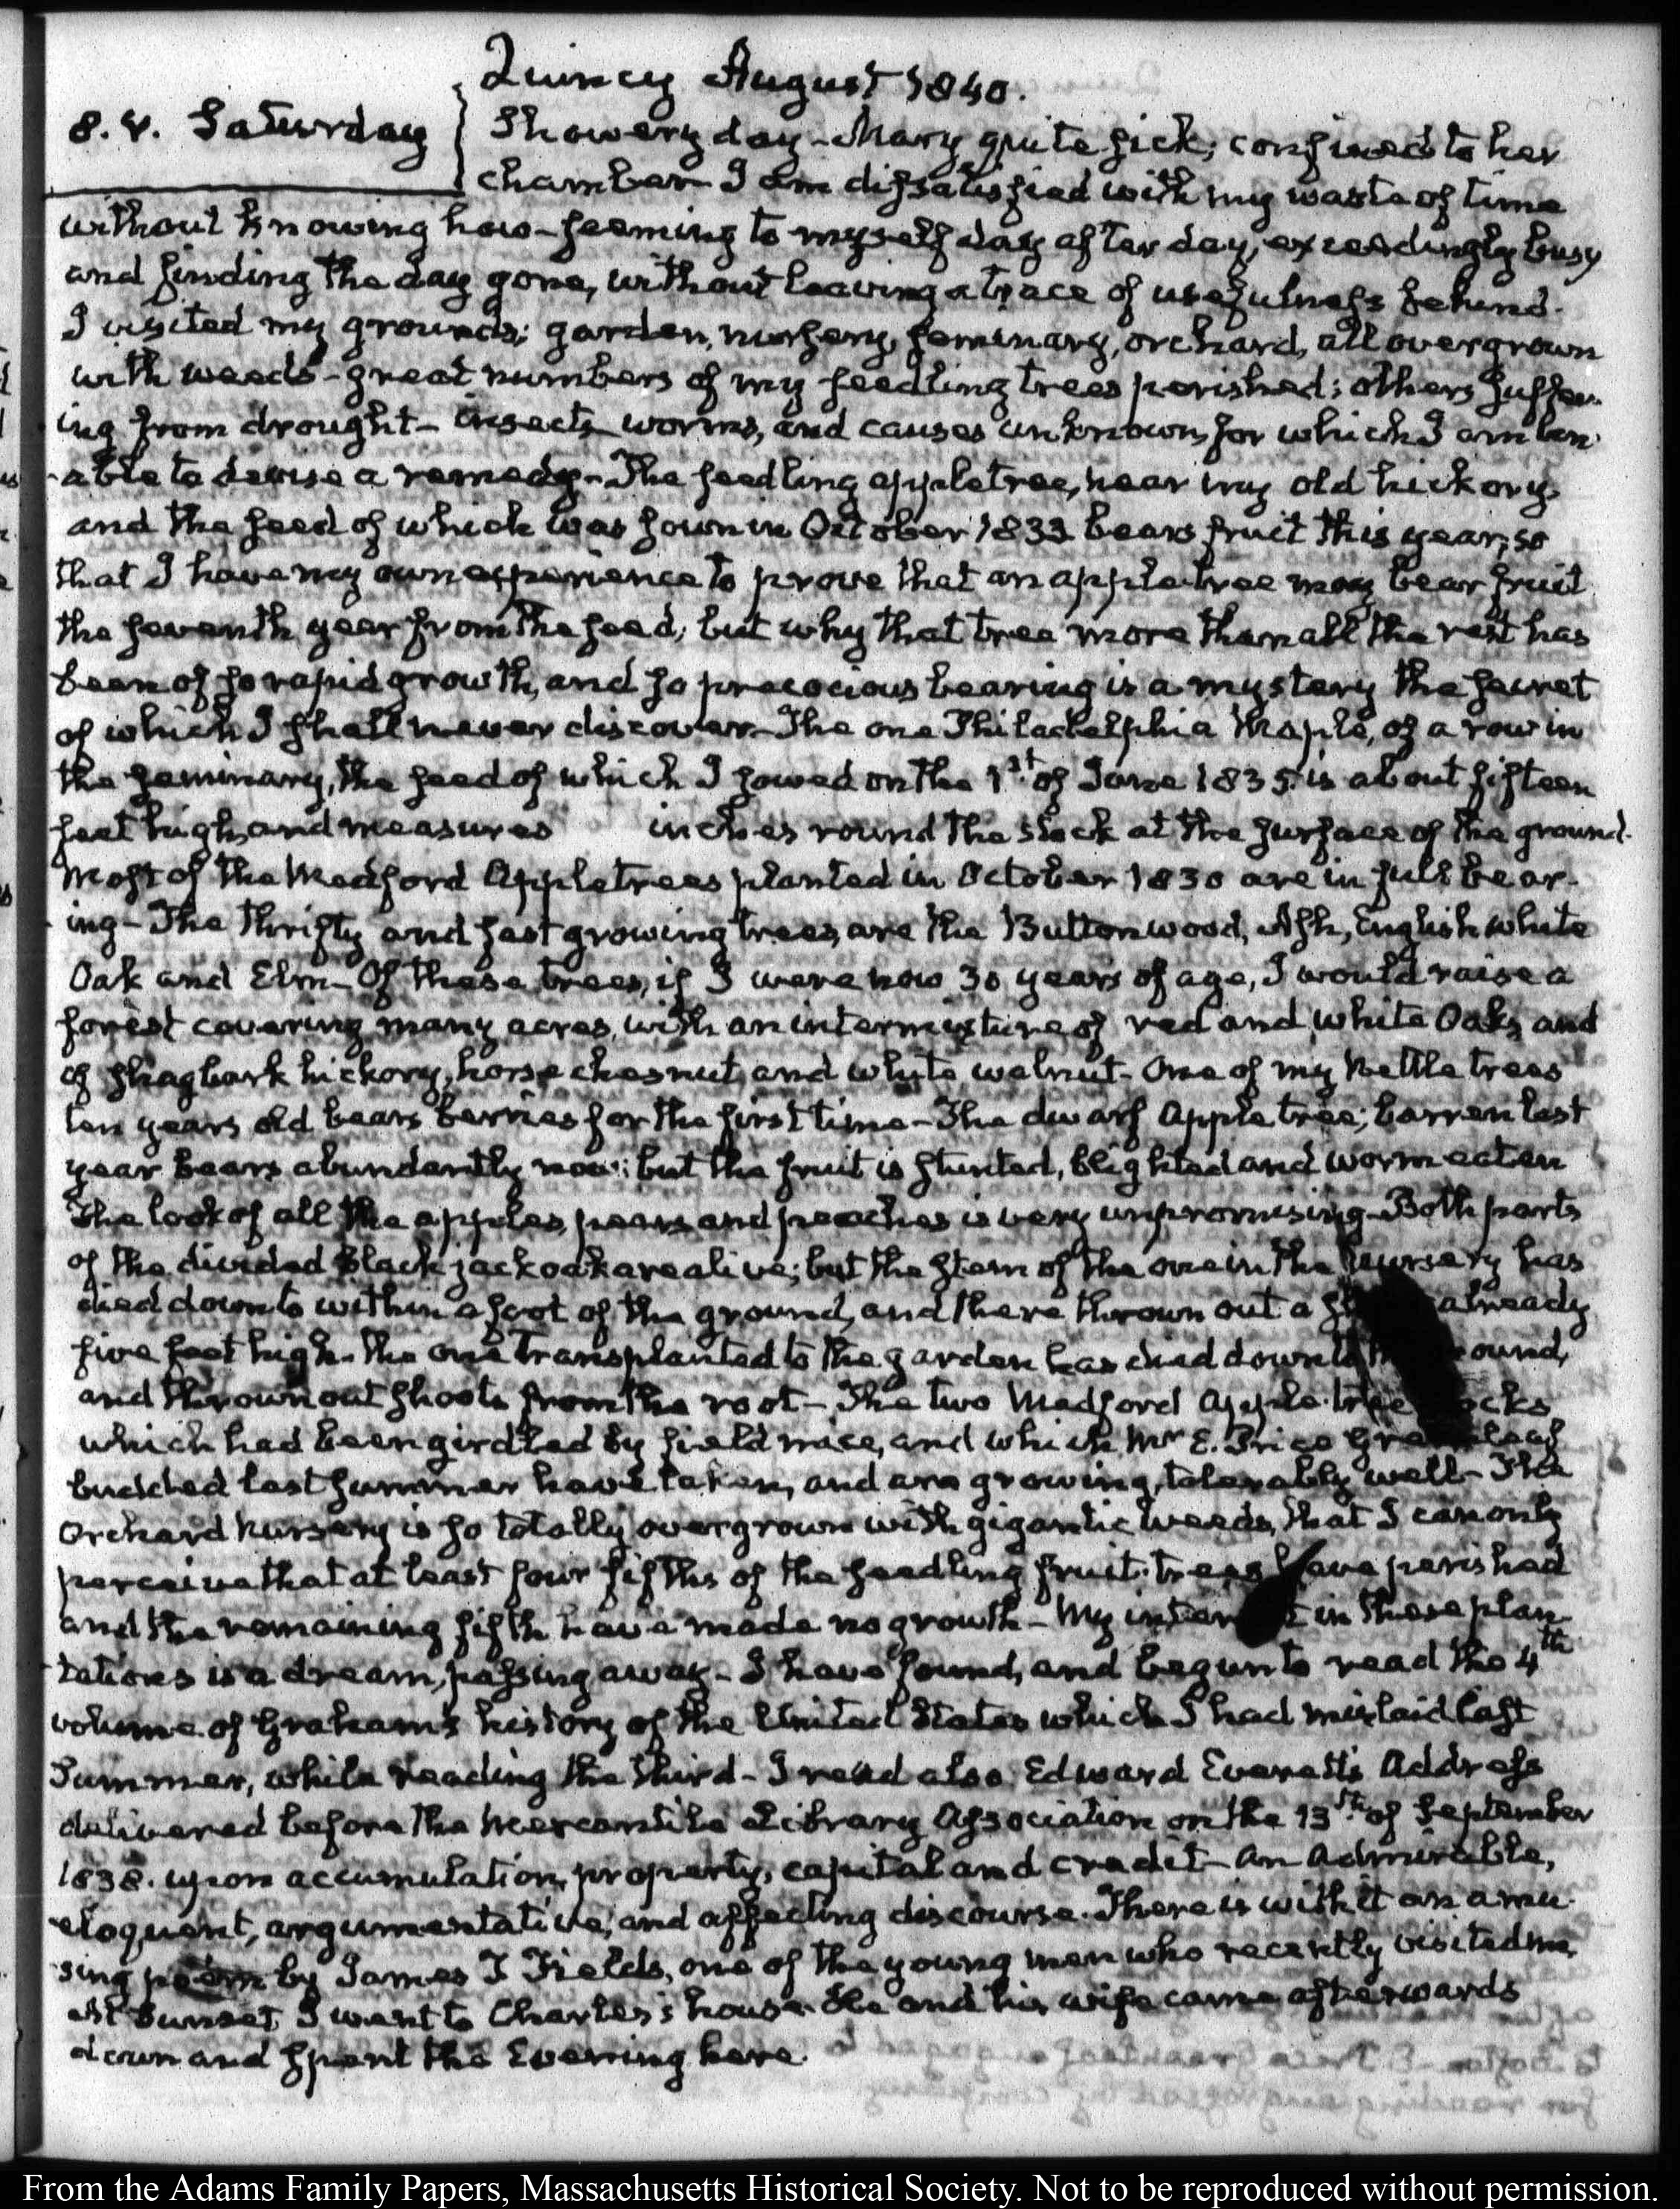 Quincy August 1840.
8. V. Saturday
Showery day – Mary quite sick; confined to her
chamber – I am dissatisfied with my waste of time
without knowing how – seeming to myself day after day, exceedingly busy
and finding the day gone, without leaving a trace of usefulness behind.
I visited my grounds; garden, nursery, seminary, orchard, all overgrown
with weeds – great numbers of my seedling trees perished; others suffer-
ing from drought – insects, worms, and causes unknown, for which I am un-
able to devise a remedy – The seedling apple tree, near my old hickory
and the seed of which was sown in October 1833 bears fruit this year; so
that I have my own experience to prove that an apple tree may bear fruit
the seventh year from the seed; but why that tree more than all the rest has
been of so rapid growth, and so precocious bearing is a mystery the secret
of which I shall never discover – The one Philadelphia Maple, of a row in
the seminary, the seed of which I sowed on the 1st of June 1835 is about fifteen
feet high, and measures inches round the stock at the surface of the ground.
Most of the Medford Apple trees planted in October 1830 are in full bear-
ing – The thrifty and fast growing trees, are the Buttonwood, Ash, English white
Oak and Elm – Of these trees, if I were now 30 years of age, I would raise a
forest covering many acres, with an intermixture of red and white Oaks, and
of shagbark hickory, horse chesnut, and white walnut – One of my Nettle trees
ten years old bears berries for the first time – The dwarf Apple tree; barren last
year bears abundantly now; but the fruit is stunted, blighted and worm eaten
The look of all the apples, pears and peaches is very unpromising – Both parts
of the divided Black jack oak are alive; but the stem of the one in the Nursery has
died down to within a foot of the ground, and there thrown out a already
five feet high. The one transplanted to the garden has died down to the ground,
and thrown out shoots from the root – The two Medford Apple-tree stocks
which had been girdled by field mice, and which Mr E. Price Greenleaf
budded last summer have taken, and are growing tolerably well – The
Orchard nursery is so totally overgrown with gigantic weeds, that I can only
perceive that at least four fifths of the seedling fruit-trees have perished
and the remaining fifth have made no growth – My interest in these plan-
tations is a dream, passing away – I have found, and begun to read the 4th
volume of Graham's history of the United States which I had mislaid last
Summer, while reading the third – I read also Edward Everett's Address
delivered before the Mercantile Library Association on the 13th of September
1838. upon accumulation, property, capital and credit – An admirable,
eloquent, argumentative, and affecting discourse. There is with it an amu-
sing poem by James T Fields, one of the young men who recently visited me
At Sunset I went to Charles's house. He and his wife came afterwards
down and spent the Evening here.
From the Adams Family Papers, Massachusetts Historical Society. Not to be reproduced without permission.